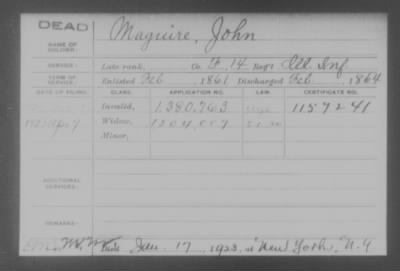 DEAD
NAME OF SOLDIER: Maguire, John
SERVICE: Late rank, Co. F, 14 Reg't Ill. Inf
TERM OF SERVICE: Enlisted Feb 1861 Discharged Feb, 1864
DATE OF FILING. CLASS. APPLICATION NO. LAW. CERTIFICATE NO.
Invalid, 1,380,763 1157241
Widow,
Minor,
ADDITIONAL SERVICES:
REMARKS:
Died Jan. 17, 1923, at New York, N.Y